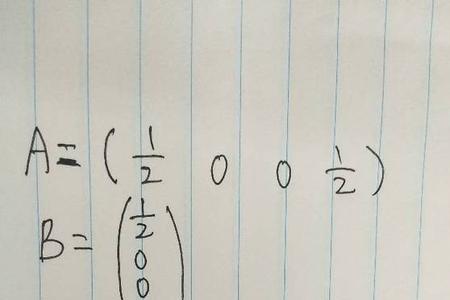 A = ( 1/2 0 0 1/2 )
B = ( 1/2
0
0